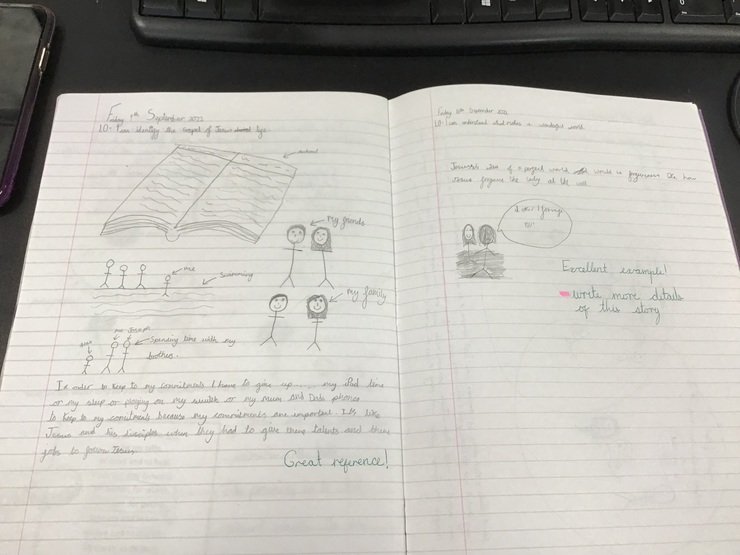 Friday 9th September 2022
LO- I can identify the gospel of Jesus life
school
my friends
me
swimming
my family
me Joseph
Spending time with my
brothers.
In order to keep to my commitments I have to give up...... my iPad time
or my sleep or playing on my switch or my mum and Dads phones
to keep to my because my commitments are important. It's like
Jesus and his disciples when they had to give there talents and there
jobs to follow Jesus
Great reference!
Friday September 2022
LO- I can understand what makes a wonderful world
idea of a perfect world would be forgiveness like how
Jesus forgave the lady at the well.
I forgive
Excellent example!
write more details
of this story